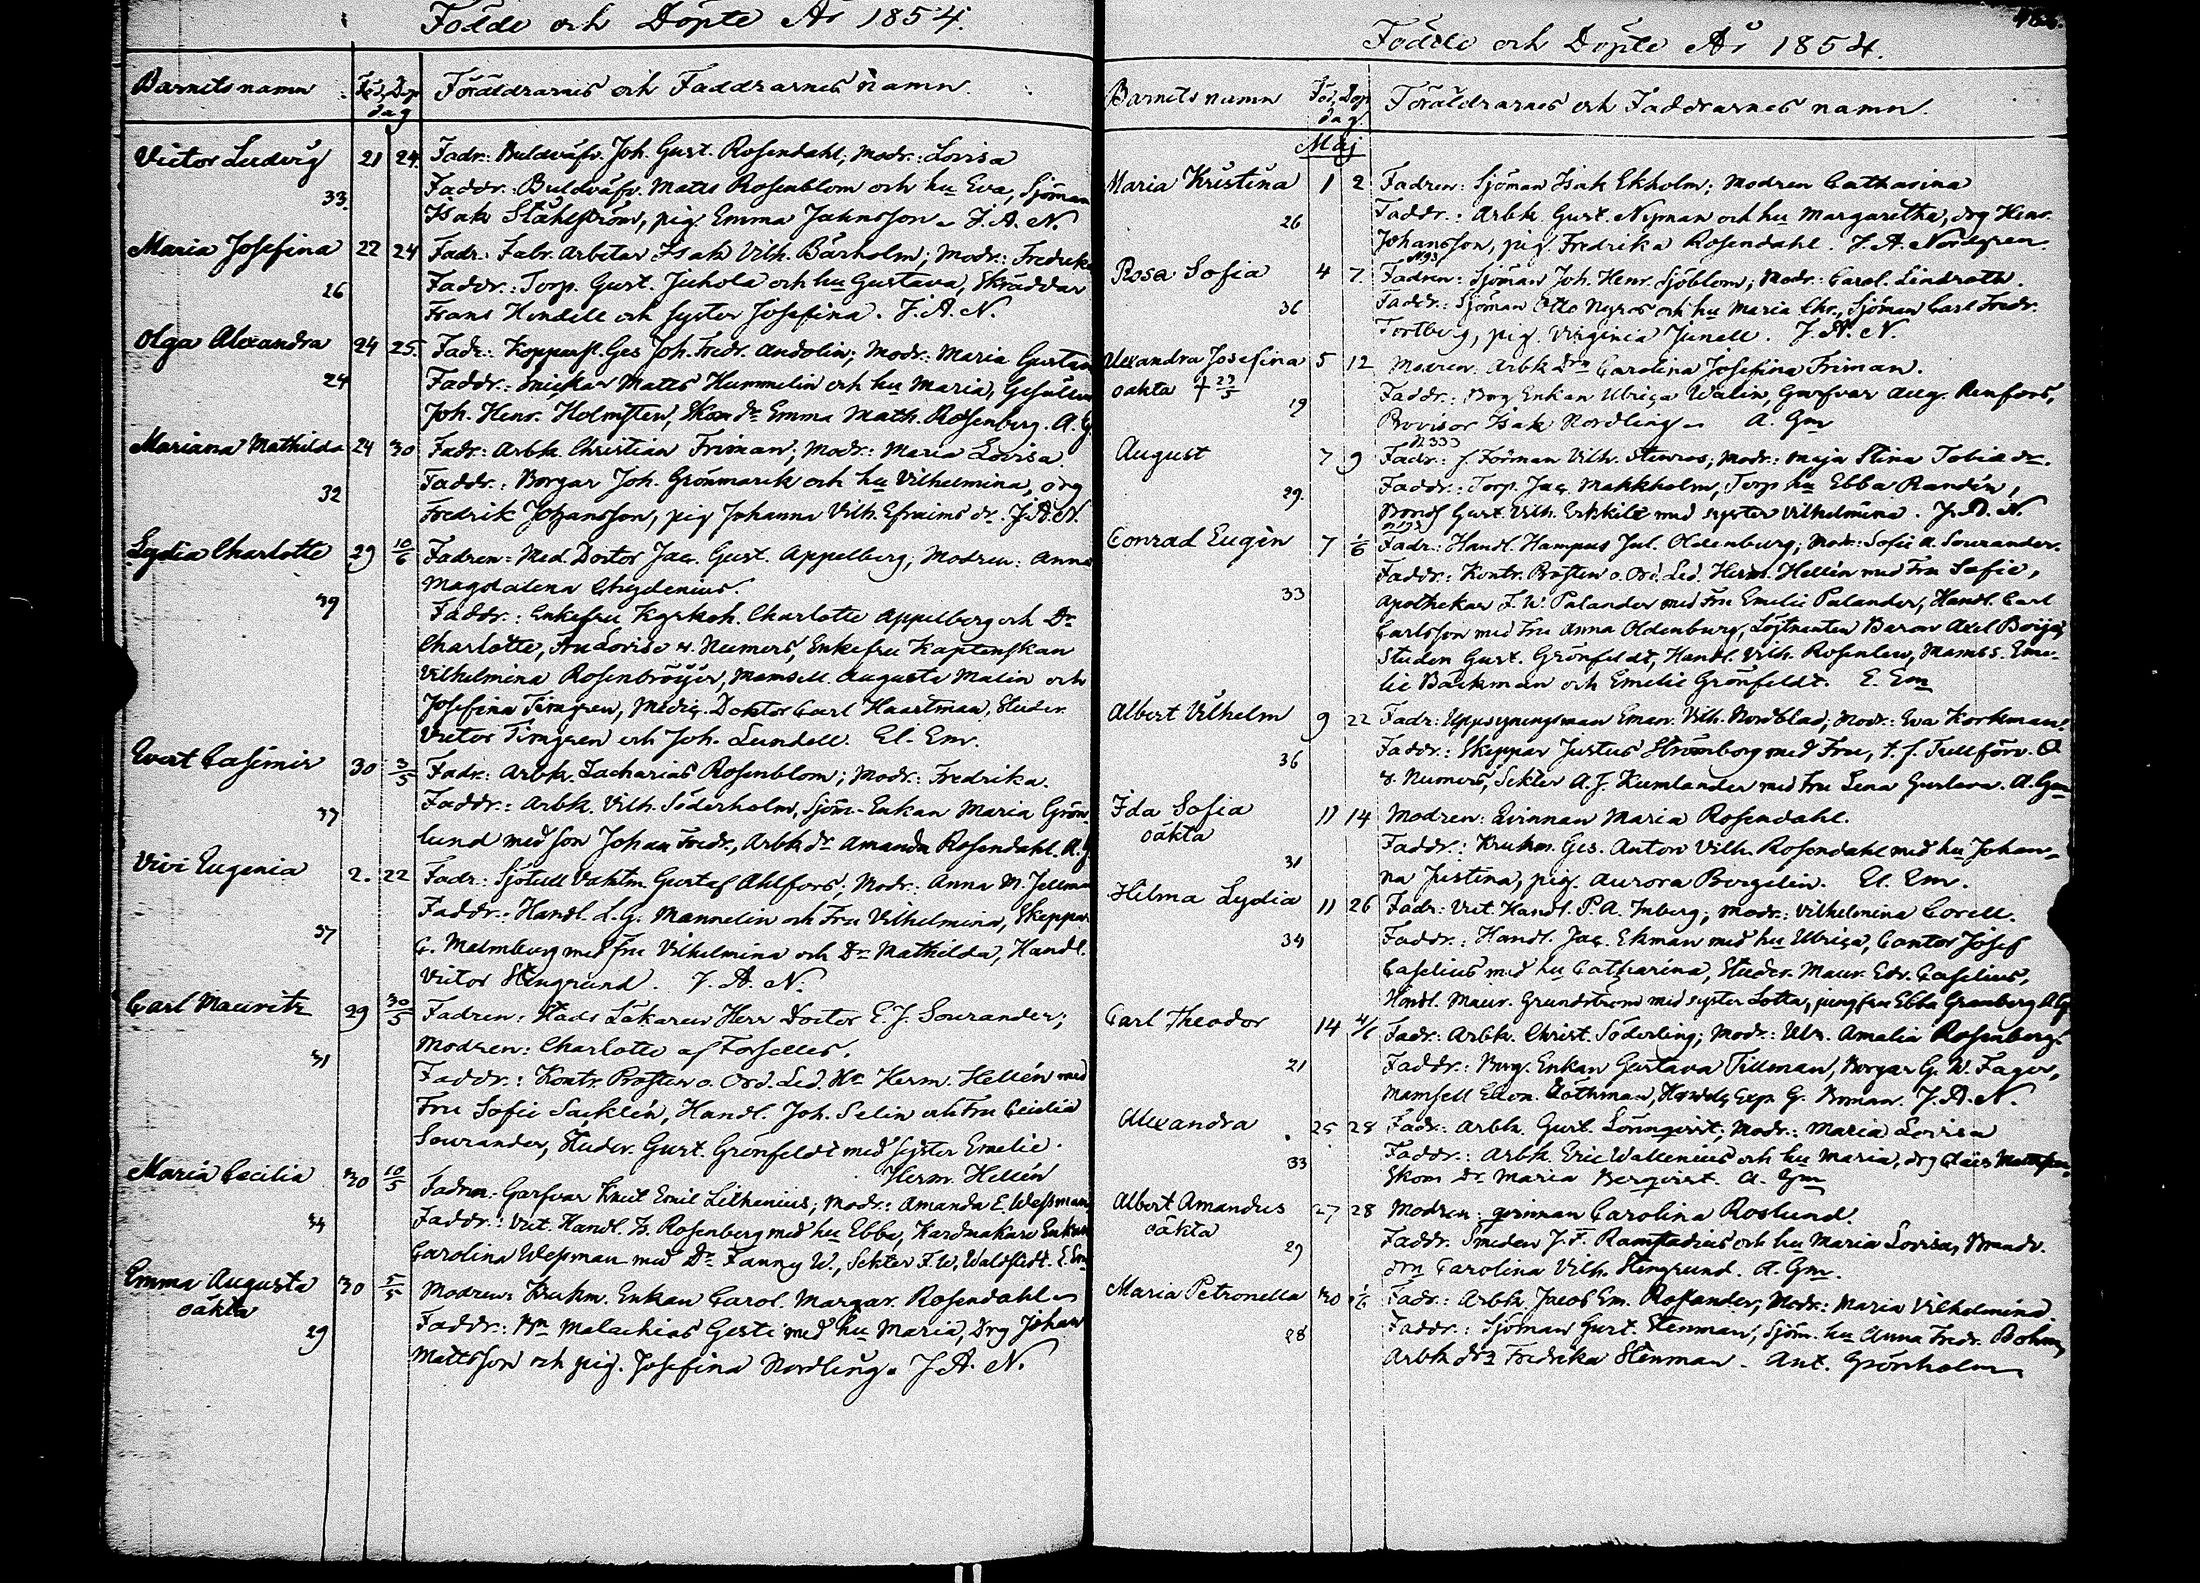 Födde och Döpte År 1854.
Barnets namn Föd. Döp. Föräldrarnes och Faddrarnes namn.
dag
Victor Ludvig 21 24 Fadr: Buldväfv. Joh. Gust. Rosendahl, Modr: Lovisa
Faddr: Buldväfv. Matts Rosenblom och hu Eva, Sjöman
33. Isak Ståhlström, pig. Emma Jahnsson. J. A. N.
Maria Josefina 22 24 Fadr: Fabr. Arbetar Isak Vilh. Bärholm; Modr: Fredrika
26 Faddr: Torp. Gust. Juhola och hu Gustava, Skräddar
Frans Hendell och syster Josefina. J. A. N.
Olga Alexandra 24 25. Fadr: Kopparsl. Ges. Joh. Fredr. Andolin; Modr: Maria Gustava
24 Faddr: Snickar Matts Hummelin och hu Maria, Gesällen
Joh. Henr. Holmsten, Skom dr Emma Math. Rosenberg. A. G
Mariana Mathilda 24 30 Fadr: Arbk. Christian Friman; Modr: Maria Lovisa
32 Faddr: Borgar Joh. Grönmark och hu Vilhelmina, drg
Fredrik Johansson, pig Johanna Vilh. Efraims dr. J. A. N.
Lydia Charlotte 29 10/6 Fadren: Med. Doctor Jac. Gust. Appelberg; Modren: Anna
Magdalena Chydenius.
39 Faddr: Enkefru Kyrkoh. Charlotte Appelberg och Dr
Charlotte, Fru Lovise v. Numers, Enkefru Kaptenskan
Vilhelmina Rosenbröijer, Mamsell Augusta Malin och
Josefina Timgren, Medic. Doktor Carl Haartman, Studer.
Victor Timgren och Joh. Lundell. El. Em.
Evert Casimir 30 3/5 Fadr: Arbk. Zacharias Rosenblom; Modr: Fredrika.
37 Faddr: Arbk. Vilh. Söderholm, Sjöm. Enkan Maria Grön-
lund med son Johan Fredr., Arbk dr Amanda Rosendahl. A. G
Vivi Eugenia 2. 22 Fadr: Sjötull Vaktm. Gustaf Ahlfors. Modr: Anna M. Jellman
37 Faddr: Handl. L. G. Mannelin och Fru Vilhelmina, Skeppar
G. Malmberg med Fru Vilhelmina och Dr Mathilda, Handl.
Victor Stengrund. J. A. N.
Carl Mauritz 29 30/5 Fadren: Stads Läkaren Herr Doctor E. J. Sourander;
Modren: Charlotte af Forselles.
31 Faddr: Kontr. Prosten o. Ord. Led. Hr Herm. Hellén med
Fru Sofie Sacklén, Handl. Joh. Selin och Fru Cecilia
Sourander, Studer. Gust. Grönfeldt med syster Emelie.
Herm. Hellén
Maria Cecilia 30 10/5 Fadren: Garfvar Knut Emil Lithenius; Modr: Amanda E. Wessman
34 Faddr: Vict. Handl. Is. Rosenberg med hu Ebba, Kardmakare Enkan
Carolina Wessman med Dr Fanny W., Sekter F. W. Waldstedt. E. Em
Emma Augusta 30 5/5 Modren: Krukm. Enkan Carol. Margar. Rosendahl.
oäkta Faddr: Bm Malachias Gests med hu Maria, Drg Johan
29 Mattsson och pig. Josefina Nordling. J. A. N.
Födde och Döpte År 1854.
Barnets namn Föd. Döp. Föräldrarnes och Faddrarnes namn.
dag.
Maj
Maria Kristina 1 2 Fadren: Sjöman Isak Ekholm; Modren Catharina
26 Faddr: Arbk. Gust. Nyman och hu Margaretha, drg Henr.
Johansson, pig. Fredrika Rosendahl. J. A. Nordgren.
Rosa Sofia 4 7. Fadren: Sjöman Joh. Henr. Sjöblom; Modr: Carol. Lindroth.
36 Faddr: Sjöman Otto Nyros och hu Maria Chr., Sjöman Carl Fredr.
Fortberg, pig. Virginia Junell. J. A. N.
Alexandra Josefina 5 12 Modren Arbk Drn Carolina Josefina Friman.
oäkta † 23/5 19 Faddr: Borg Enkan Ulrica Walin, Garfvar Aug. Renfors,
Provisor Isak Nordling. A. Gm
August 7 9 Fadr: f. Forman Vilh. Stenros; Modr: Maja Stina Tobia dr.
29. Faddr: Torp. Jac. Makkholm, Torp hu Ebba Randén,
Bonds Gust. Vilh. Erkkilä med syster Vilhelmina. J. A. N.
Conrad Eugén 7 1/6 Fadr: Handl. Hampus Jul. Oldenburg; Modr: Sofie A. Sourander.
Faddr: Kontr. Prosten o. Ord. Led. Herm. Hellén med Fru Sofie,
33 Apothekar F. W. Palander med Fru Emelie Palander, Handl. Carl
Carlsson med Fru Anna Oldenburg, Löjtnanten Baron Axel Boije,
Studen Gust. Grönfeldt, Handl. Vilh. Rosenlew, Mamss. Eme-
lie Bäckman och Emelie Grönfeldt. E. Em
Albert Vilhelm 9 22 Fadr: Uppsyningsman Eman. Vilh. Nordblad; Modr: Eva Korkman.
36 Faddr: Skeppar Justus Strömborg med Fru, t. f. Tullförv. O
v. Numers, Sekter A. J. Kumlander med Fru Lena Gustava. A. Gm
Ida Sofia 11 14 Modren: Qvinnan Maria Rosendahl.
oäkta 31 Faddr: Krukm. Ges. Anton Vilh. Rosendahl med hu Johan-
na Justina, pig. Aurora Bergelin. El. Em.
Hilma Lydia 11 26 Fadr: Vict. Handl. P. A. Inberg; Modr: Vilhelmina Corell.
34 Faddr: Handl. Jac. Ekman med hu Ulrica, Cantor Josef
Caselius med hu Catharina, Studer. Maur. Edv. Caselius,
Handl. Maur. Grundström med syster Lotta, jungfru Ebba Granberg A. G
Carl Theodor 14 4/6 Fadr: Arbk. Christ. Söderling; Modr: Ulr. Amalia Rosenberg.
21 Faddr: Borg. Enkan Gustava Tillman, Borgar G. W. Fager,
Mamsell Eleon. Cothman, Handels Exp. G. Boman. J. A. N.
Alexandra 25 28 Fadr: Arbk. Gust. Lönnqvist; Modr: Maria Lovisa
33 Faddr: Arbk. Eric Wallenius och hu Maria, drg Claes Mattsson.
Skom dr Maria Bergqvist. A. Gm
Albert Amandus 27 28 Modren: qvinnan Carolina Roslund.
oäkta 29 Faddr. Smeden J. F. Ramstadius och hu Maria Lovisa, Brandv.
drn Carolina Vilh. Stengrund. A. Gm.
Maria Petronella 30 1/6 Fadr: Arbk. Jacob Em. Rosander; Modr: Maria Vilhelmina
28 Faddr: Sjöman Gust. Stenman, Sjöm. hu Anna Fredr. Bohm,
Arbk drn Fredrika Stenman. Ant. Grönholm